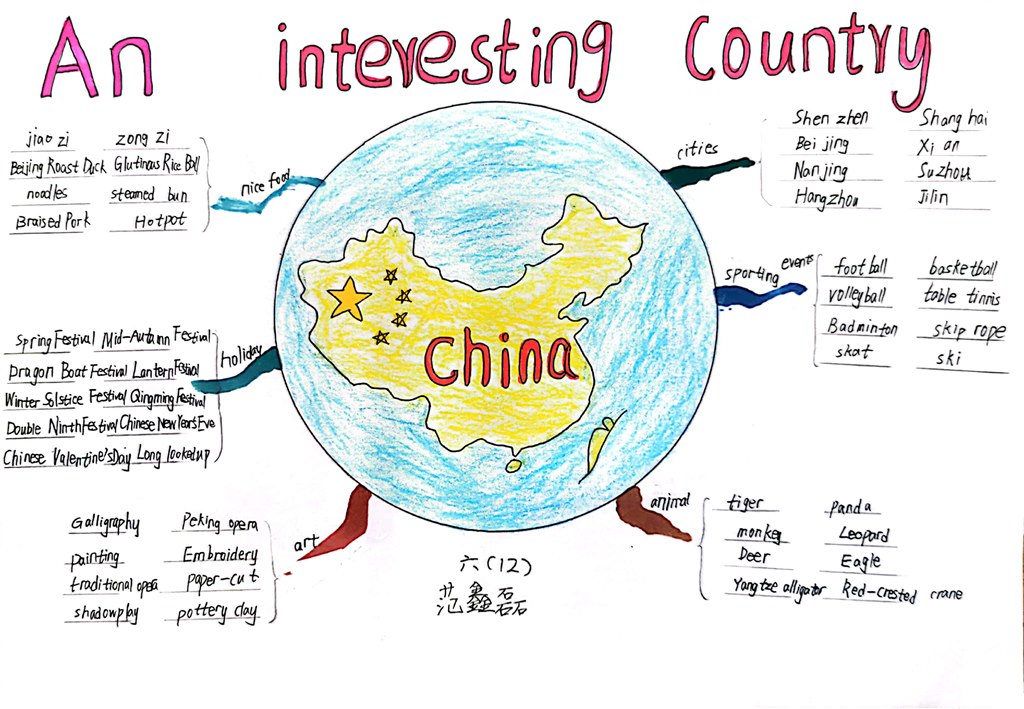 An interesting Country
jiao zi zong zi
Beijing Roast Duck Glutinous Rice Ball
noodles steamed bun
Braised Pork Hotpot
nice food
cities
Shen zhen Shang hai
Bei jing Xi an
Nan jing Suzhou
Hangzhou Jilin
sporting events
foot ball basketball
volleyball table tinnis
Badminton skip rope
skat ski
holiday
Spring Festival Mid-Autumn Festival
Dragon Boat Festival Lantern Festival
Winter Solstice Festival Qingming Festival
Double Ninth Festival Chinese New Year's Eve
Chinese Valentine's Day Long looked up
China
art
Galligraphy Peking opera
painting Embroidery
traditional opera paper-cut
shadowplay pottery clay
animal
tiger panda
monkey Leopard
Deer Eagle
Yangtze alligator Red-crested crane
六(12)
范鑫磊